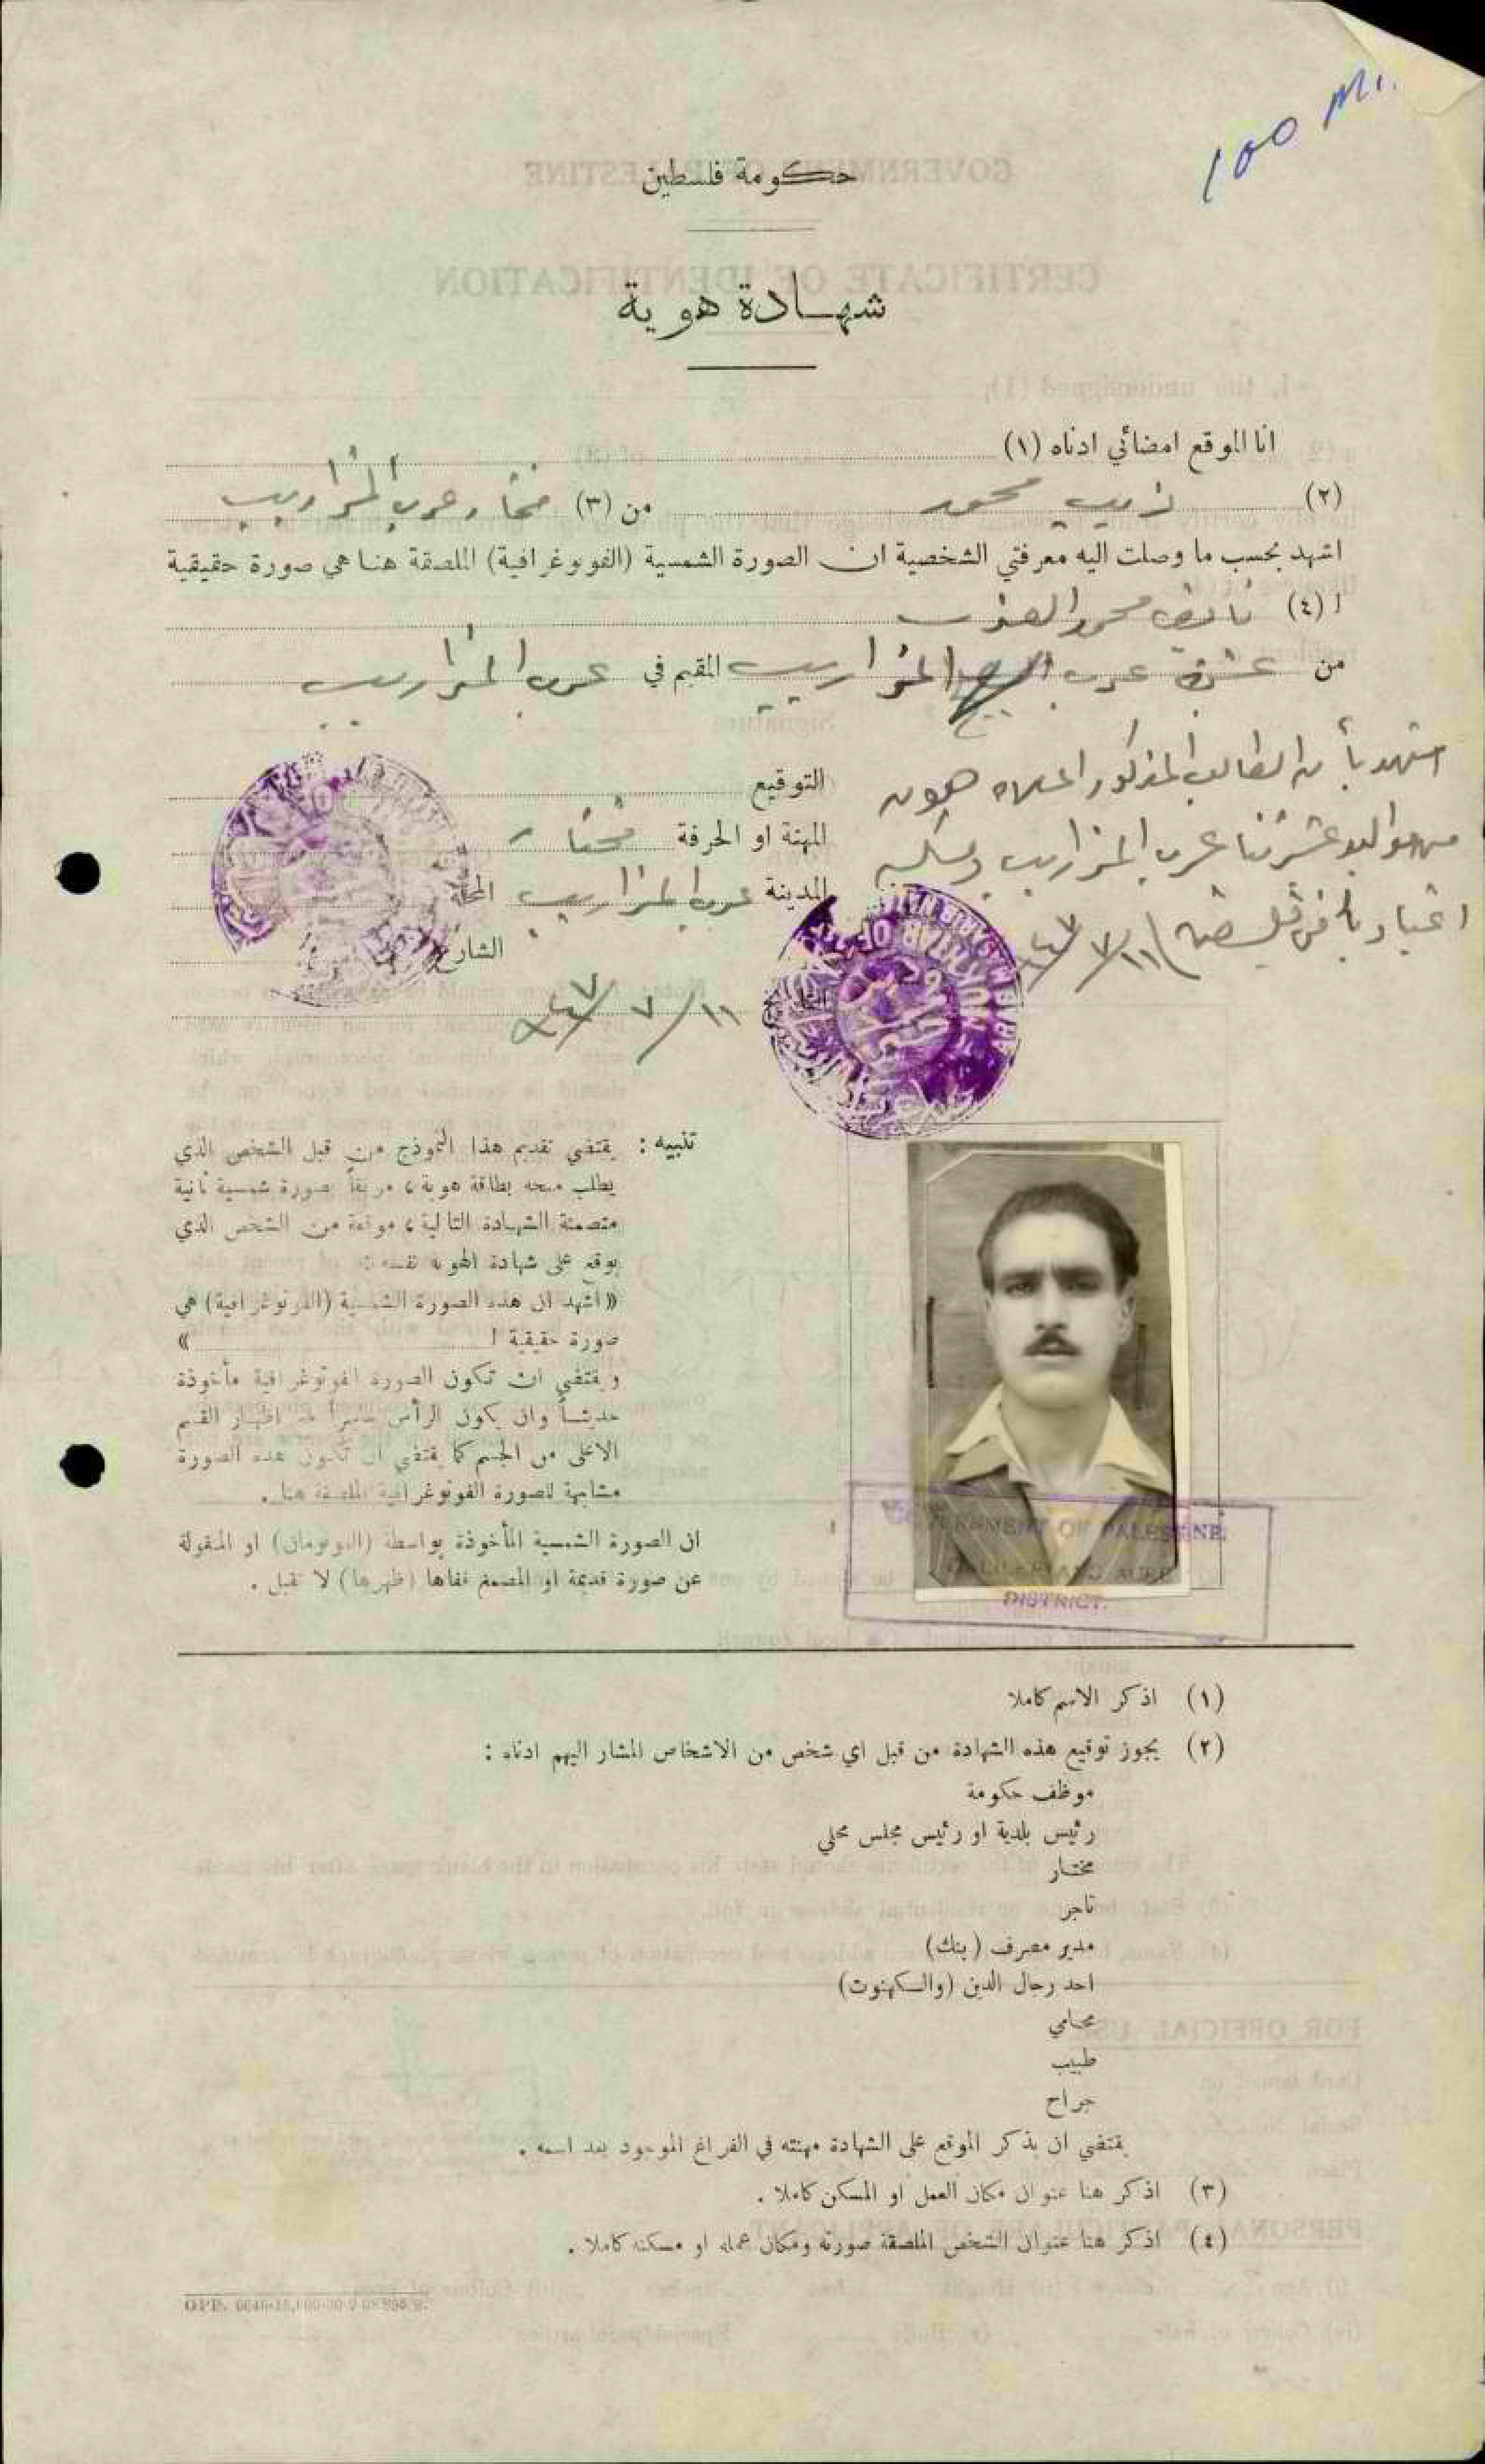 100 Ml.
حكومة فلسطين
شهادة هوية
انا الموقع امضائي ادناه (١)
(٢) ذيب محمود من (٣) مختار عرب المزاريب
اشهد بحسب ما وصلت اليه معرفتي الشخصية ان الصورة الشمسية (الفوتوغرافية) الملصقة هنا هي صورة حقيقية
ل (٤) نايف محمد
من عشيرة عرب المزاريب المقيم في عرب المزاريب
اشهد بأن الطالب المذكور اعلاه هو من
مواليد عشيرتنا عرب المزاريب
في فلسطين ١١/٧/٤٧
التوقيع
المهنة او الحرفة مختار
المدينة عرب المزاريب المحلة
الشارع
التاريخ ١١/٧/٤٧
تنبيه : يقتضي تقديم هذا النموذج من قبل الشخص الذي
يطلب منحه بطاقة هوية ، مرفقاً بصورة شمسية ثانية
متضمنة الشهادة التالية ، موقعة من الشخص الذي
يوقع على شهادة الهوية نفسها :
« اشهد ان هذه الصورة الشمسية (الفوتوغرافية) هي
صورة حقيقية ل »
ويقتضي ان تكون الصورة الفوتوغرافية مأخوذة
حديثاً وان يكون الرأس حاسراً مع اظهار القسم
الاعلى من الجسم كما يقتضي ان تكون هذه الصورة
مشابهة للصورة الفوتوغرافية الملصقة هنا .
ان الصورة الشمسية المأخوذة بواسطة (البوتومان) او المنقولة
عن صورة قديمة او المصمغ قفاها (ظهرها) لا تقبل .
GOVERNMENT OF PALESTINE.
DISTRICT.
(١) اذكر الاسم كاملا
(٢) يجوز توقيع هذه الشهادة من قبل اي شخص من الاشخاص المشار اليهم ادناه :
موظف حكومة
رئيس بلدية او رئيس مجلس محلي
مختار
تاجر
مدير مصرف (بنك)
احد رجال الدين (والكهنوت)
محامي
طبيب
جراح
يقتضي ان يذكر الموقع على الشهادة مهنته في الفراغ الموجود بعد اسمه .
(٣) اذكر هنا عنوان مكان العمل او المسكن كاملا .
(٤) اذكر هنا عنوان الشخص الملصقة صورته ومكان عمله او مسكنه كاملا .